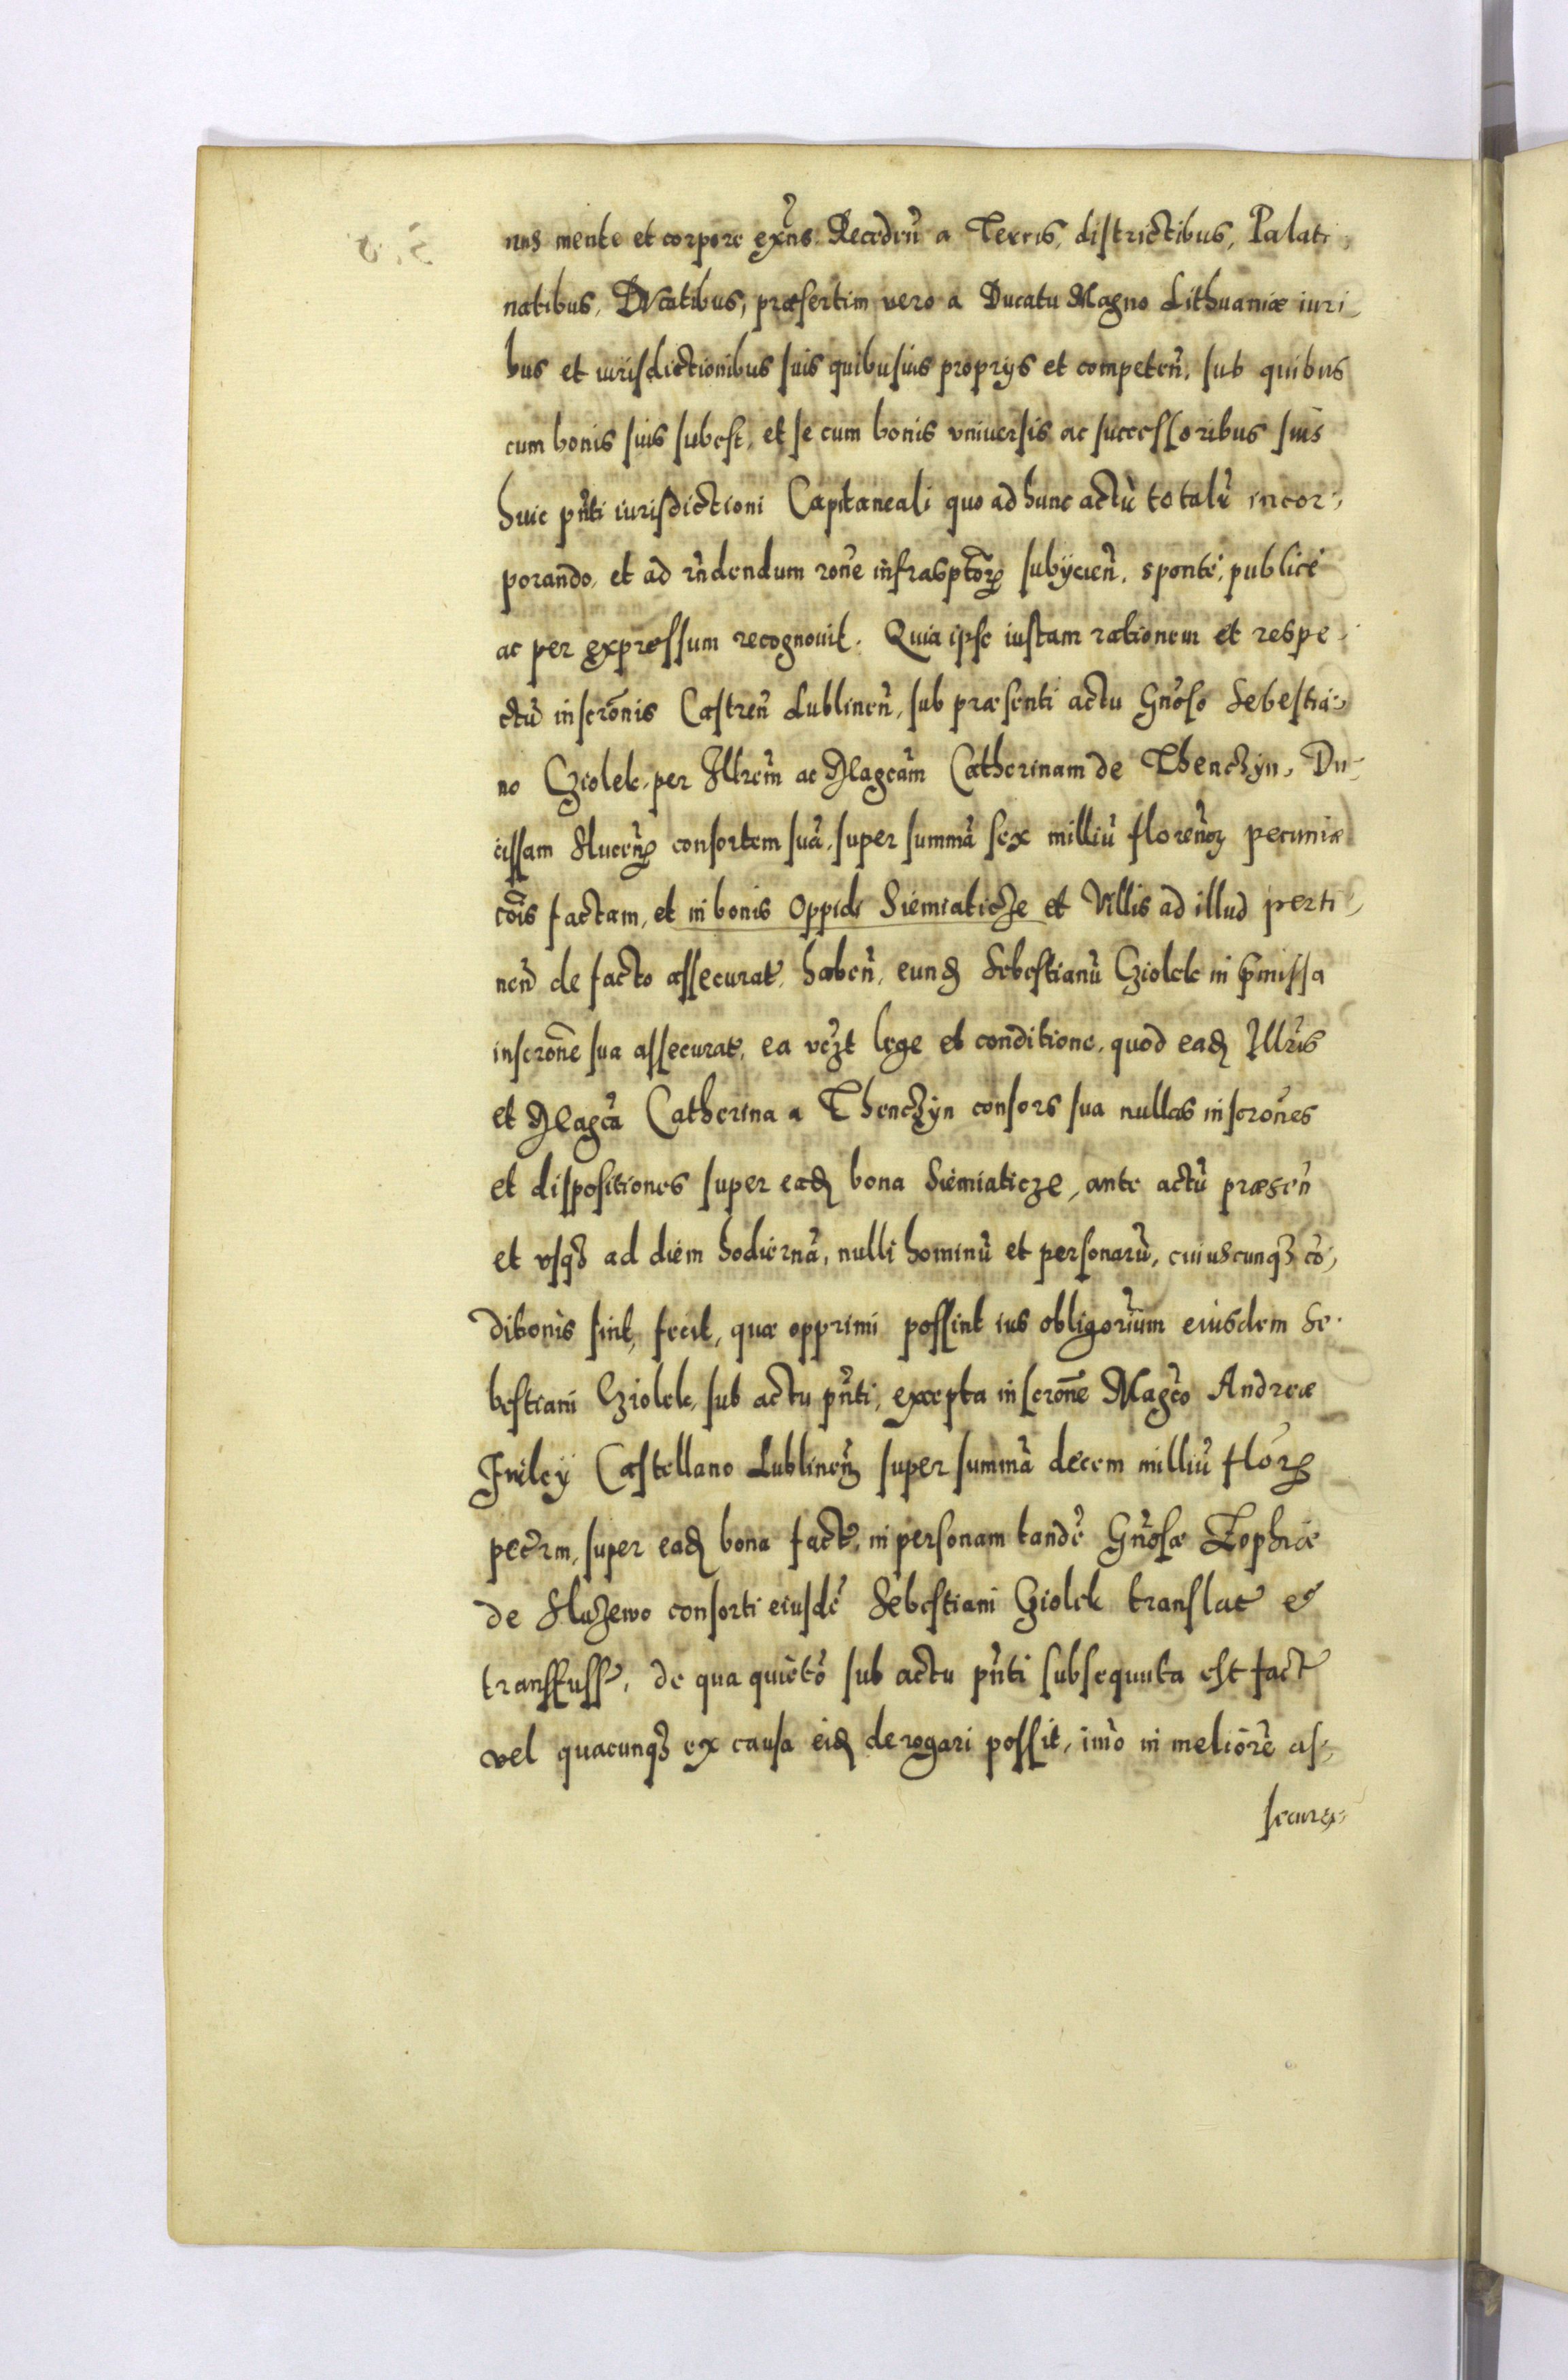 nus mente et corpore exñs. Recedeñ a Terris, districtibus, Palati,
natibus, Ducatibus, præsertim vero a Ducatu Magno Lithuaniæ iuri,
bus et iurisdictionibus suis quibusuis proprys et competeñ, sub quibus
cum bonis suis subest, et se cum bonis vniuersis ac successoribus suis
huic pñti iurisdictioni Capitaneali quo ad hunc actũ totalr̃ incor,
porando, et ad rñdendum rõne infrasptorꝝ subÿcieñ, sponte, publice
ac per expressum recognouit. Quia ipse iustam rationem et respe,
ctũ inscrõnis Castreñ Lublineñ, sub præsenti actu Gñoso Sebestia,
no Cziolek, per Illrem̃ ac Magcam̃ Catherinam de Thenczyn, Du,
cissam Slucenꝝ consortem suã, super summã sex milliũ florenoꝝ pecuniæ
cõis factam, et in bonis Oppidi Siemiaticze et Villis ad illud perti,
neñ de facto assecurat, habeñ, eundꝫ Sebestianũ Cziolek in p̃missa
inscrõne sua assecurat, ea vczt lege et conditione, quod eadꝫ Illris̃
et Magca Catherina a Thenczyn consors sua nullas inscrõnes
et dispositiones super eadꝫ bona Siemiaticze, ante actũ præseñ
et vsqꝫ ad diem hodiernã, nulli hominũ et personarũ, cuiuscunqꝫ cõ,
ditonis sint, fecit, quæ opprimi possint ius obligoriũm eiusdem Se,
bestiani Cziolek, sub actu pñti, excepta inscrõne Magco Andreæ
Firley Castellano Lublinenꝫ super summã decem milliũ florꝝ
pecrm, super eadꝫ bona fact, in personam tandẽ Gñosæ Zophiæ
de Sluzewo consorti eiusdẽ Sebestiani Cziolek translat et
transfuss, de qua quietõ sub actu pñti subsequuta est fact
vel quacunqꝫ ex causa eidꝫ derogari possit, imo in meliorẽ as,
secura,